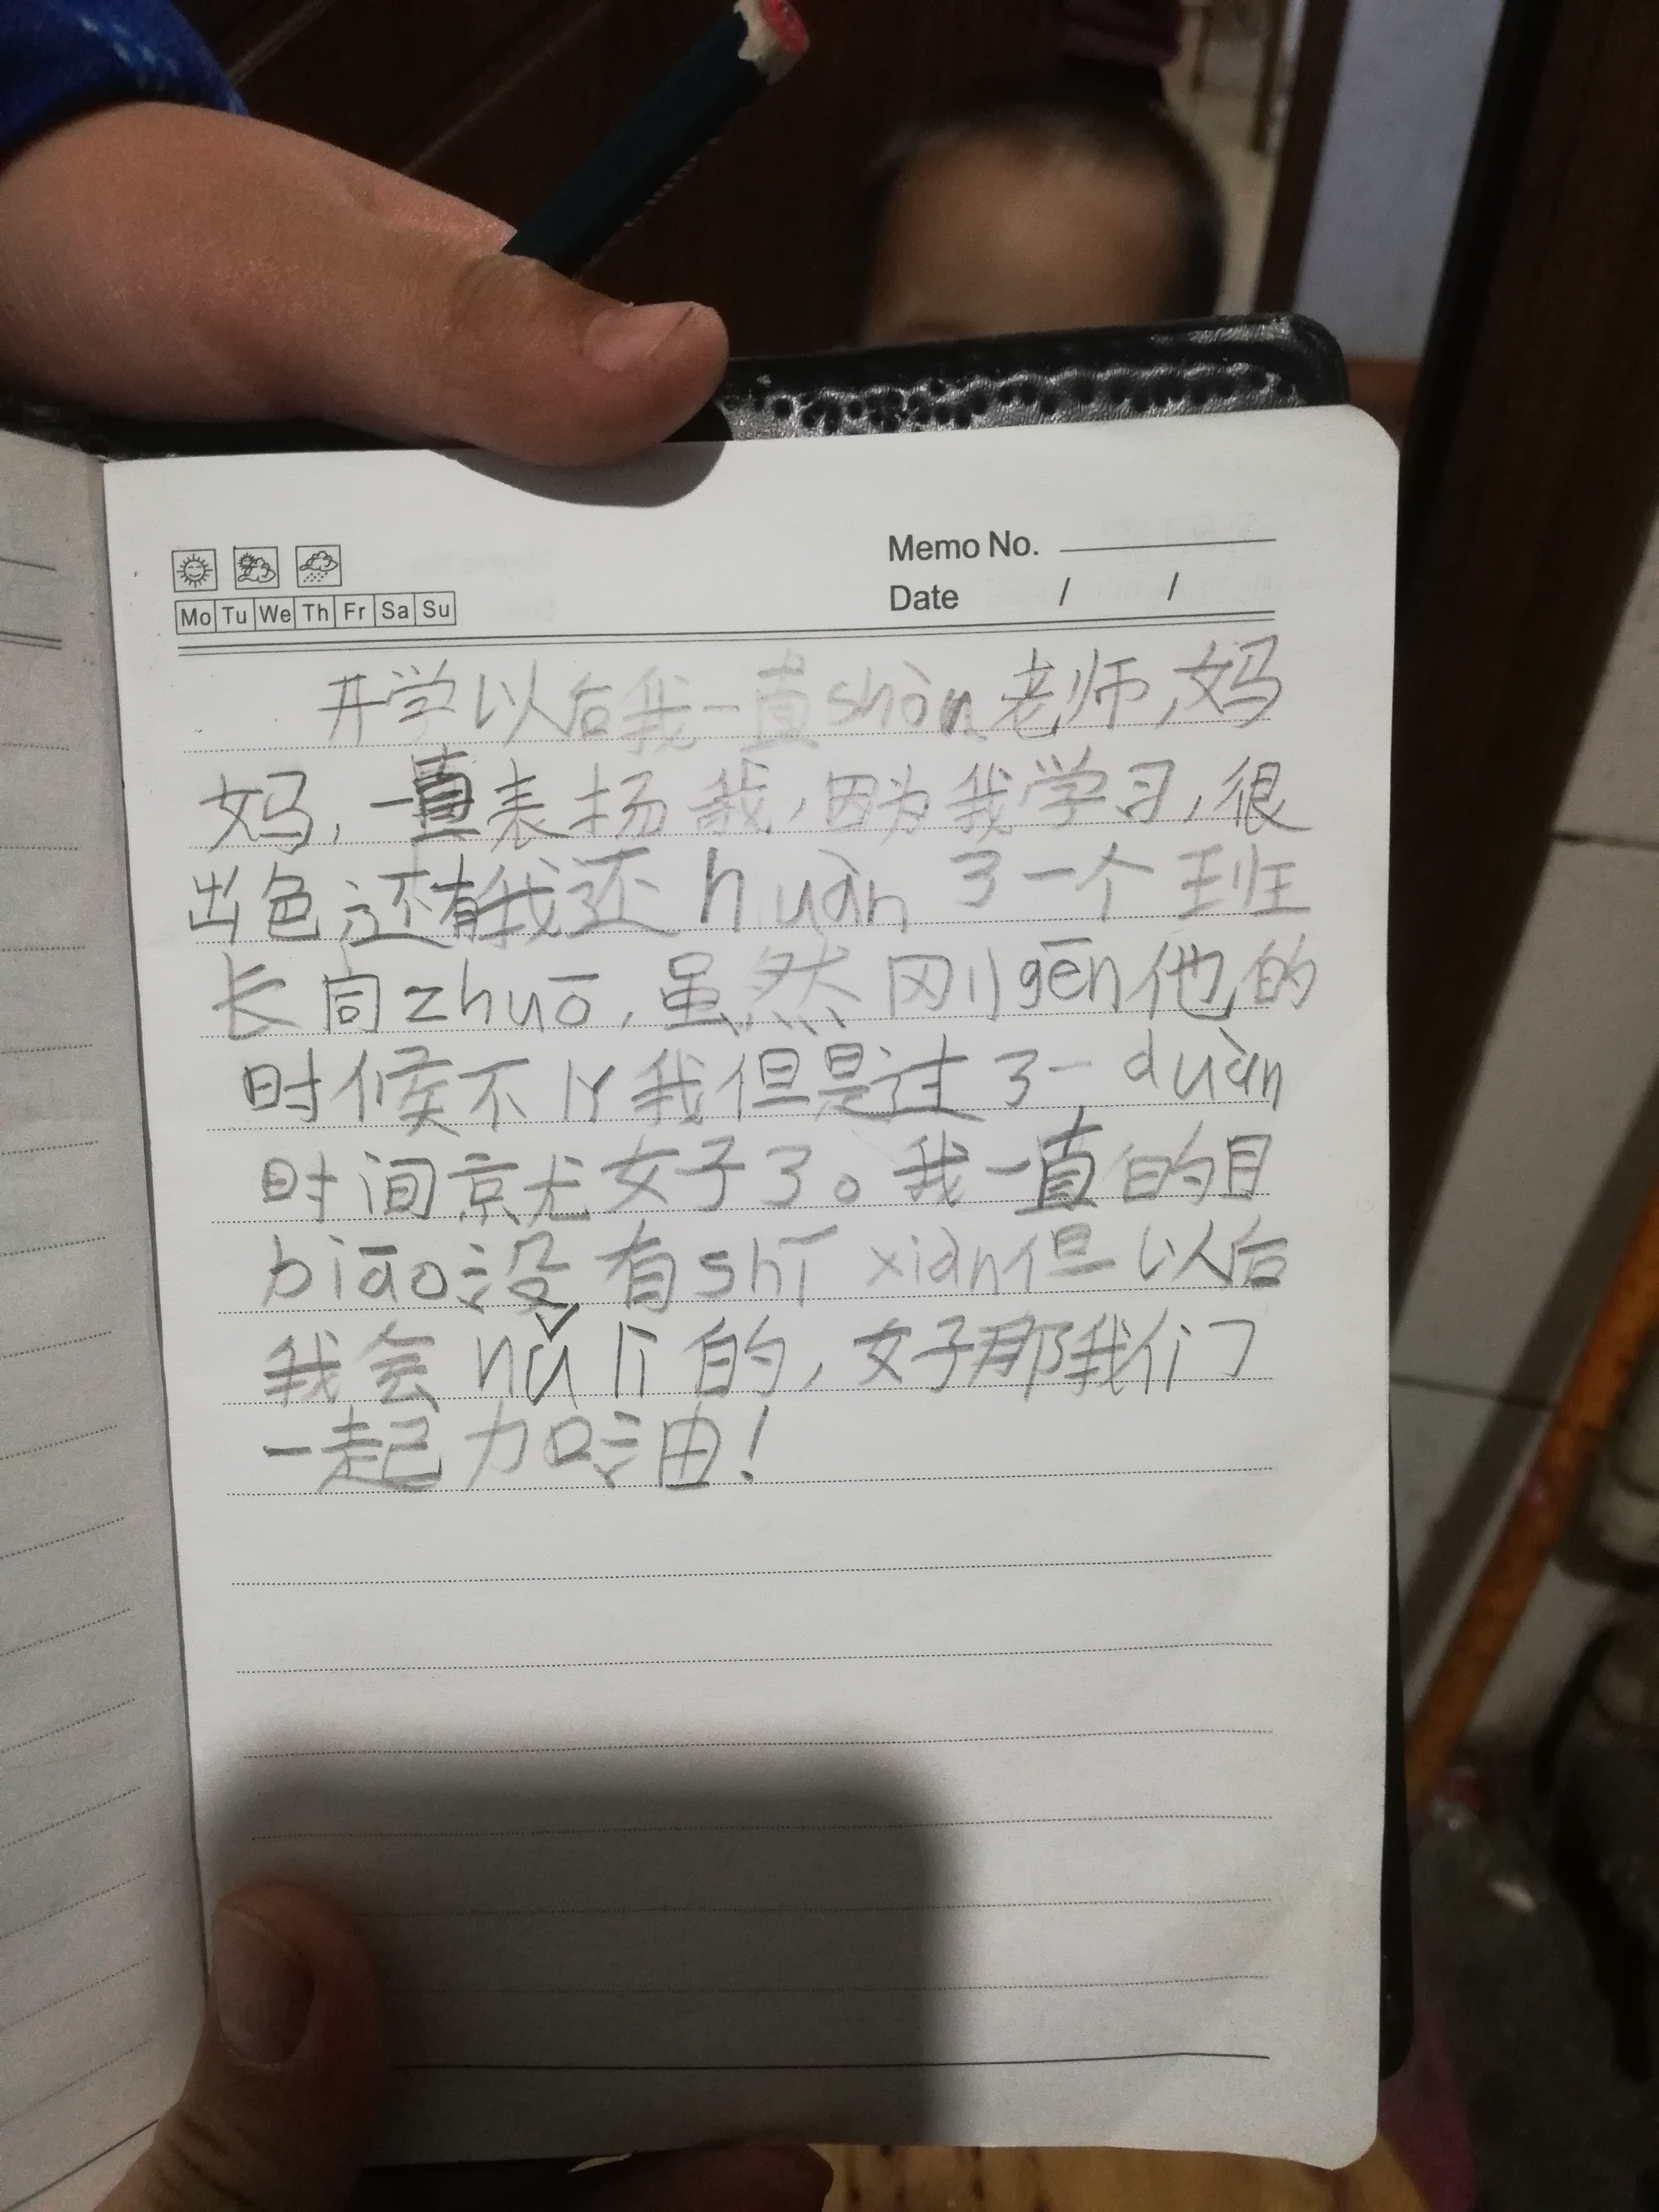 Memo No.
Mo Tu We Th Fr Sa Su
Date / /
开学以后我一直shòn老师,妈
妈,一直表扬我,因为我学习,很
出色还有我还huàn了一个班
长同zhuō,虽然刚gēn他的
时候不lǐ我但是过了一duàn
时间就好了。我一直的目
biāo没有shí xiàn但以后
我会nǔ lì的,好那我们
一起加油!